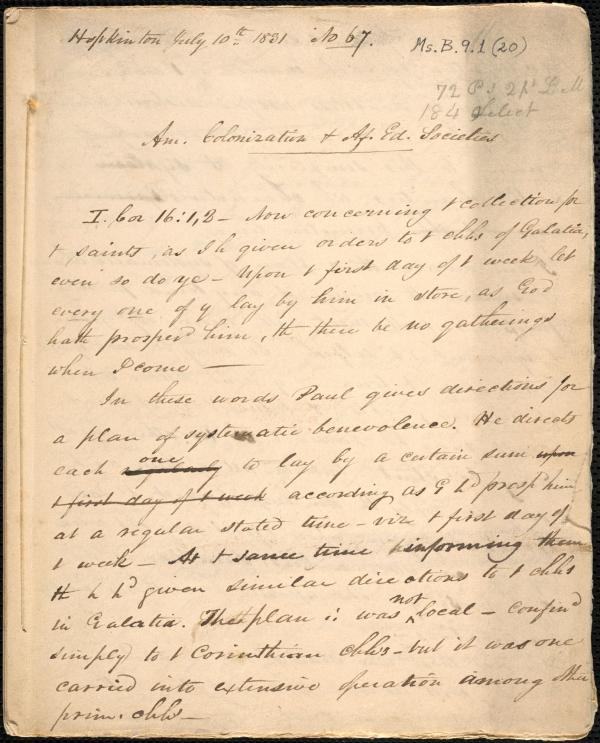 Hopkinton July 10th 1831 No 67.
Ms. B. 9. 1 (20)
72 Ps 2d L M
184 Select
Am. Colonization & Af. Ed. Societies
I. Cor 16:1,2 - Now concerning t collection for
t saints, as I h given orders to t chhs of Galatia,
even so do ye - Upon t first day of t week let
every one of y lay by him in store, as God
hath prosperd him, tt there be no gatherings
when I come -
In these words Paul gives directions for
a plan of systematic benevolence. He directs
each regularly one to lay by a certain sum upon
t first day of t week according as G hd prospd him
at a regular stated time - viz t first day of
t week - At t same time informing them
tt h hd given similar directions to t chhs
in Galatia. The plan was not local - confind
simply to t Corinthian chhs - but it was one
carried into extensive operation among other
prim. chhs -